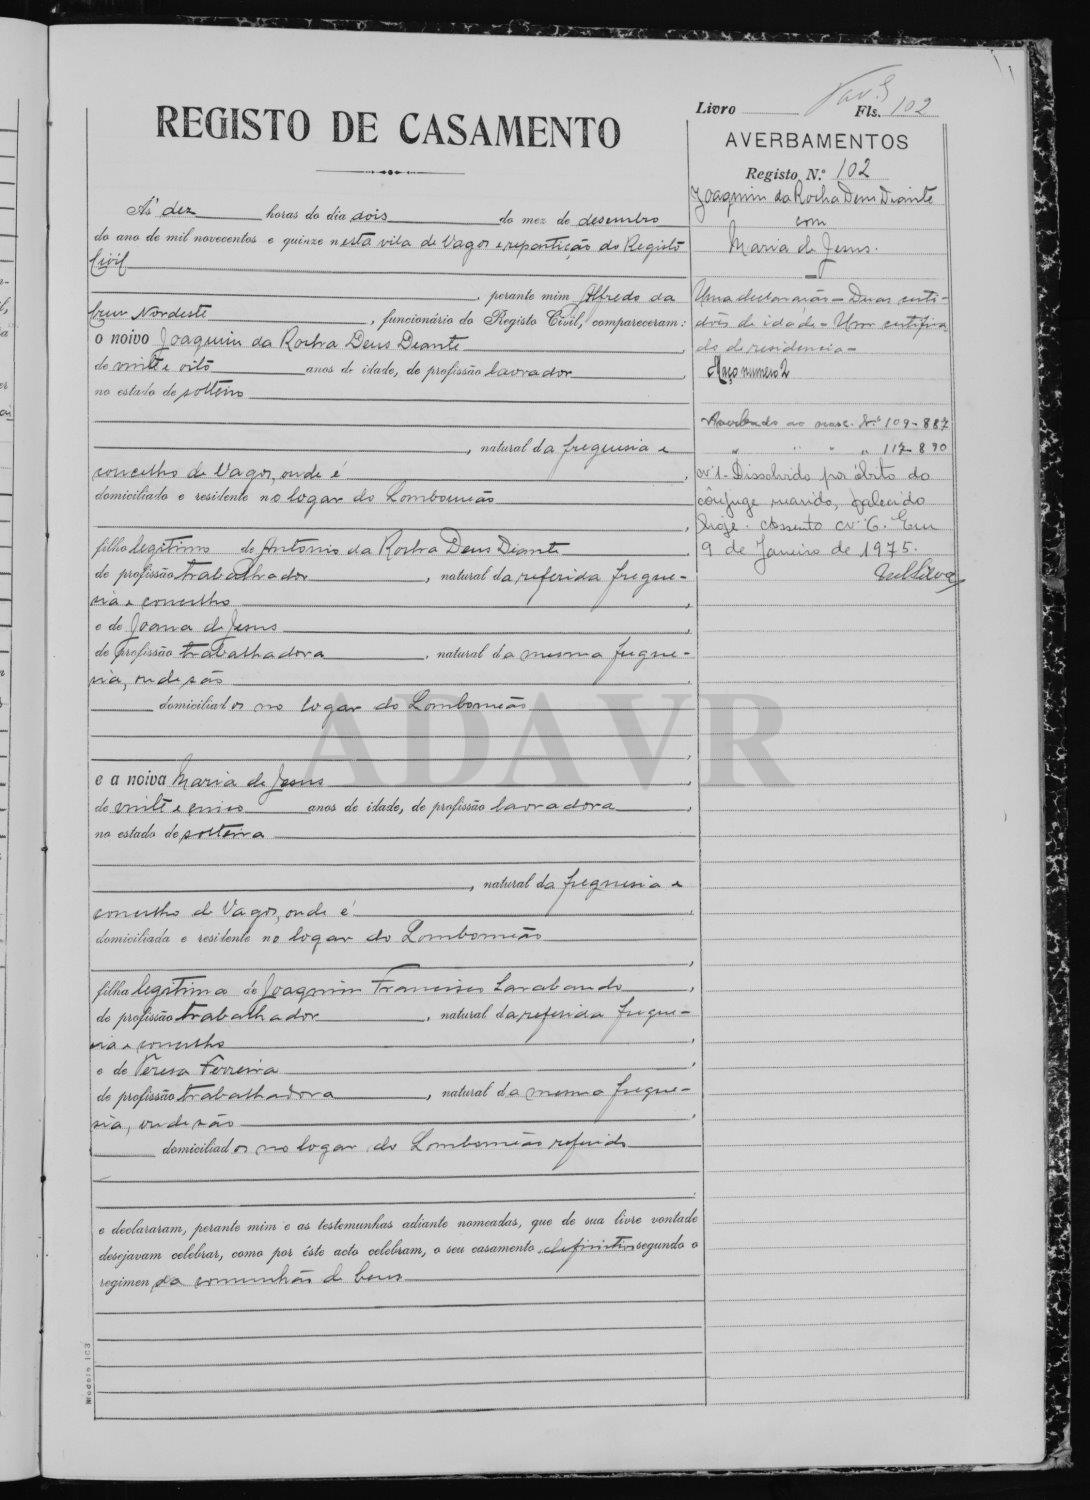 Livro Fls. 102
REGISTO DE CASAMENTO
AVERBAMENTOS
Registo N.º 102
Joaquim da Rocha Deus Deante
com
Maria de Jesus.
Uma declaração - Duas certi-
dões de idade - Um certifica
do de residencia -
Maço numero 2
Averbado ao nasc. N.º 109-887
" " " 117-890
Nº 1 - Dissolvido por óbito do
cônjuge marido, falecido
hoje. Assento nº 6. Em
9 de Janeiro de 1975.
Às dez horas do dia dois do mez de desembro
do ano de mil novecentos e quinze nesta vila de Vagos e repartição do Registo
Civil
, perante mim Alfredo da
Cruz Nordeste , funcionário do Registo Civil, compareceram:
o noivo Joaquim da Rocha Deus Deante ,
de vinte e oito anos de idade, de profissão lavrador ,
no estado de solteiro
, natural da freguesia e
concelho de Vagos, onde é ,
domiciliado e residente no logar do Lombomeão
,
filho legitimo de Antonio da Rocha Deus Diante
de profissão trabalhador , natural da referida fregue-
sia e concelho ,
e de Joana de Jesus ,
de profissão trabalhadora , natural da mesma fregue-
sia, onde são ,
domiciliados no logar do Lombomeão
,
e a noiva Maria de Jesus ,
de vinte e cinco anos de idade, de profissão lavradora ,
no estado de solteira
, natural da freguesia e
concelho de Vagos, onde é ,
domiciliada e residente no logar do Lombomeão
,
filha legitima de Joaquim Francisco Sarabando ,
de profissão trabalhador , natural da referida fregue-
sia e concelho ,
e de Teresa Ferreira ,
de profissão trabalhadora , natural da mesma fregue-
sia, onde são ,
domiciliados no logar do Lombomeão referido
e declararam, perante mim e as testemunhas adiante nomeadas, que de sua livre vontade
desejavam celebrar, como por êste acto celebram, o seu casamento definitivo segundo o
regimen da comunhão de bens
Modelo 103
ADAVR